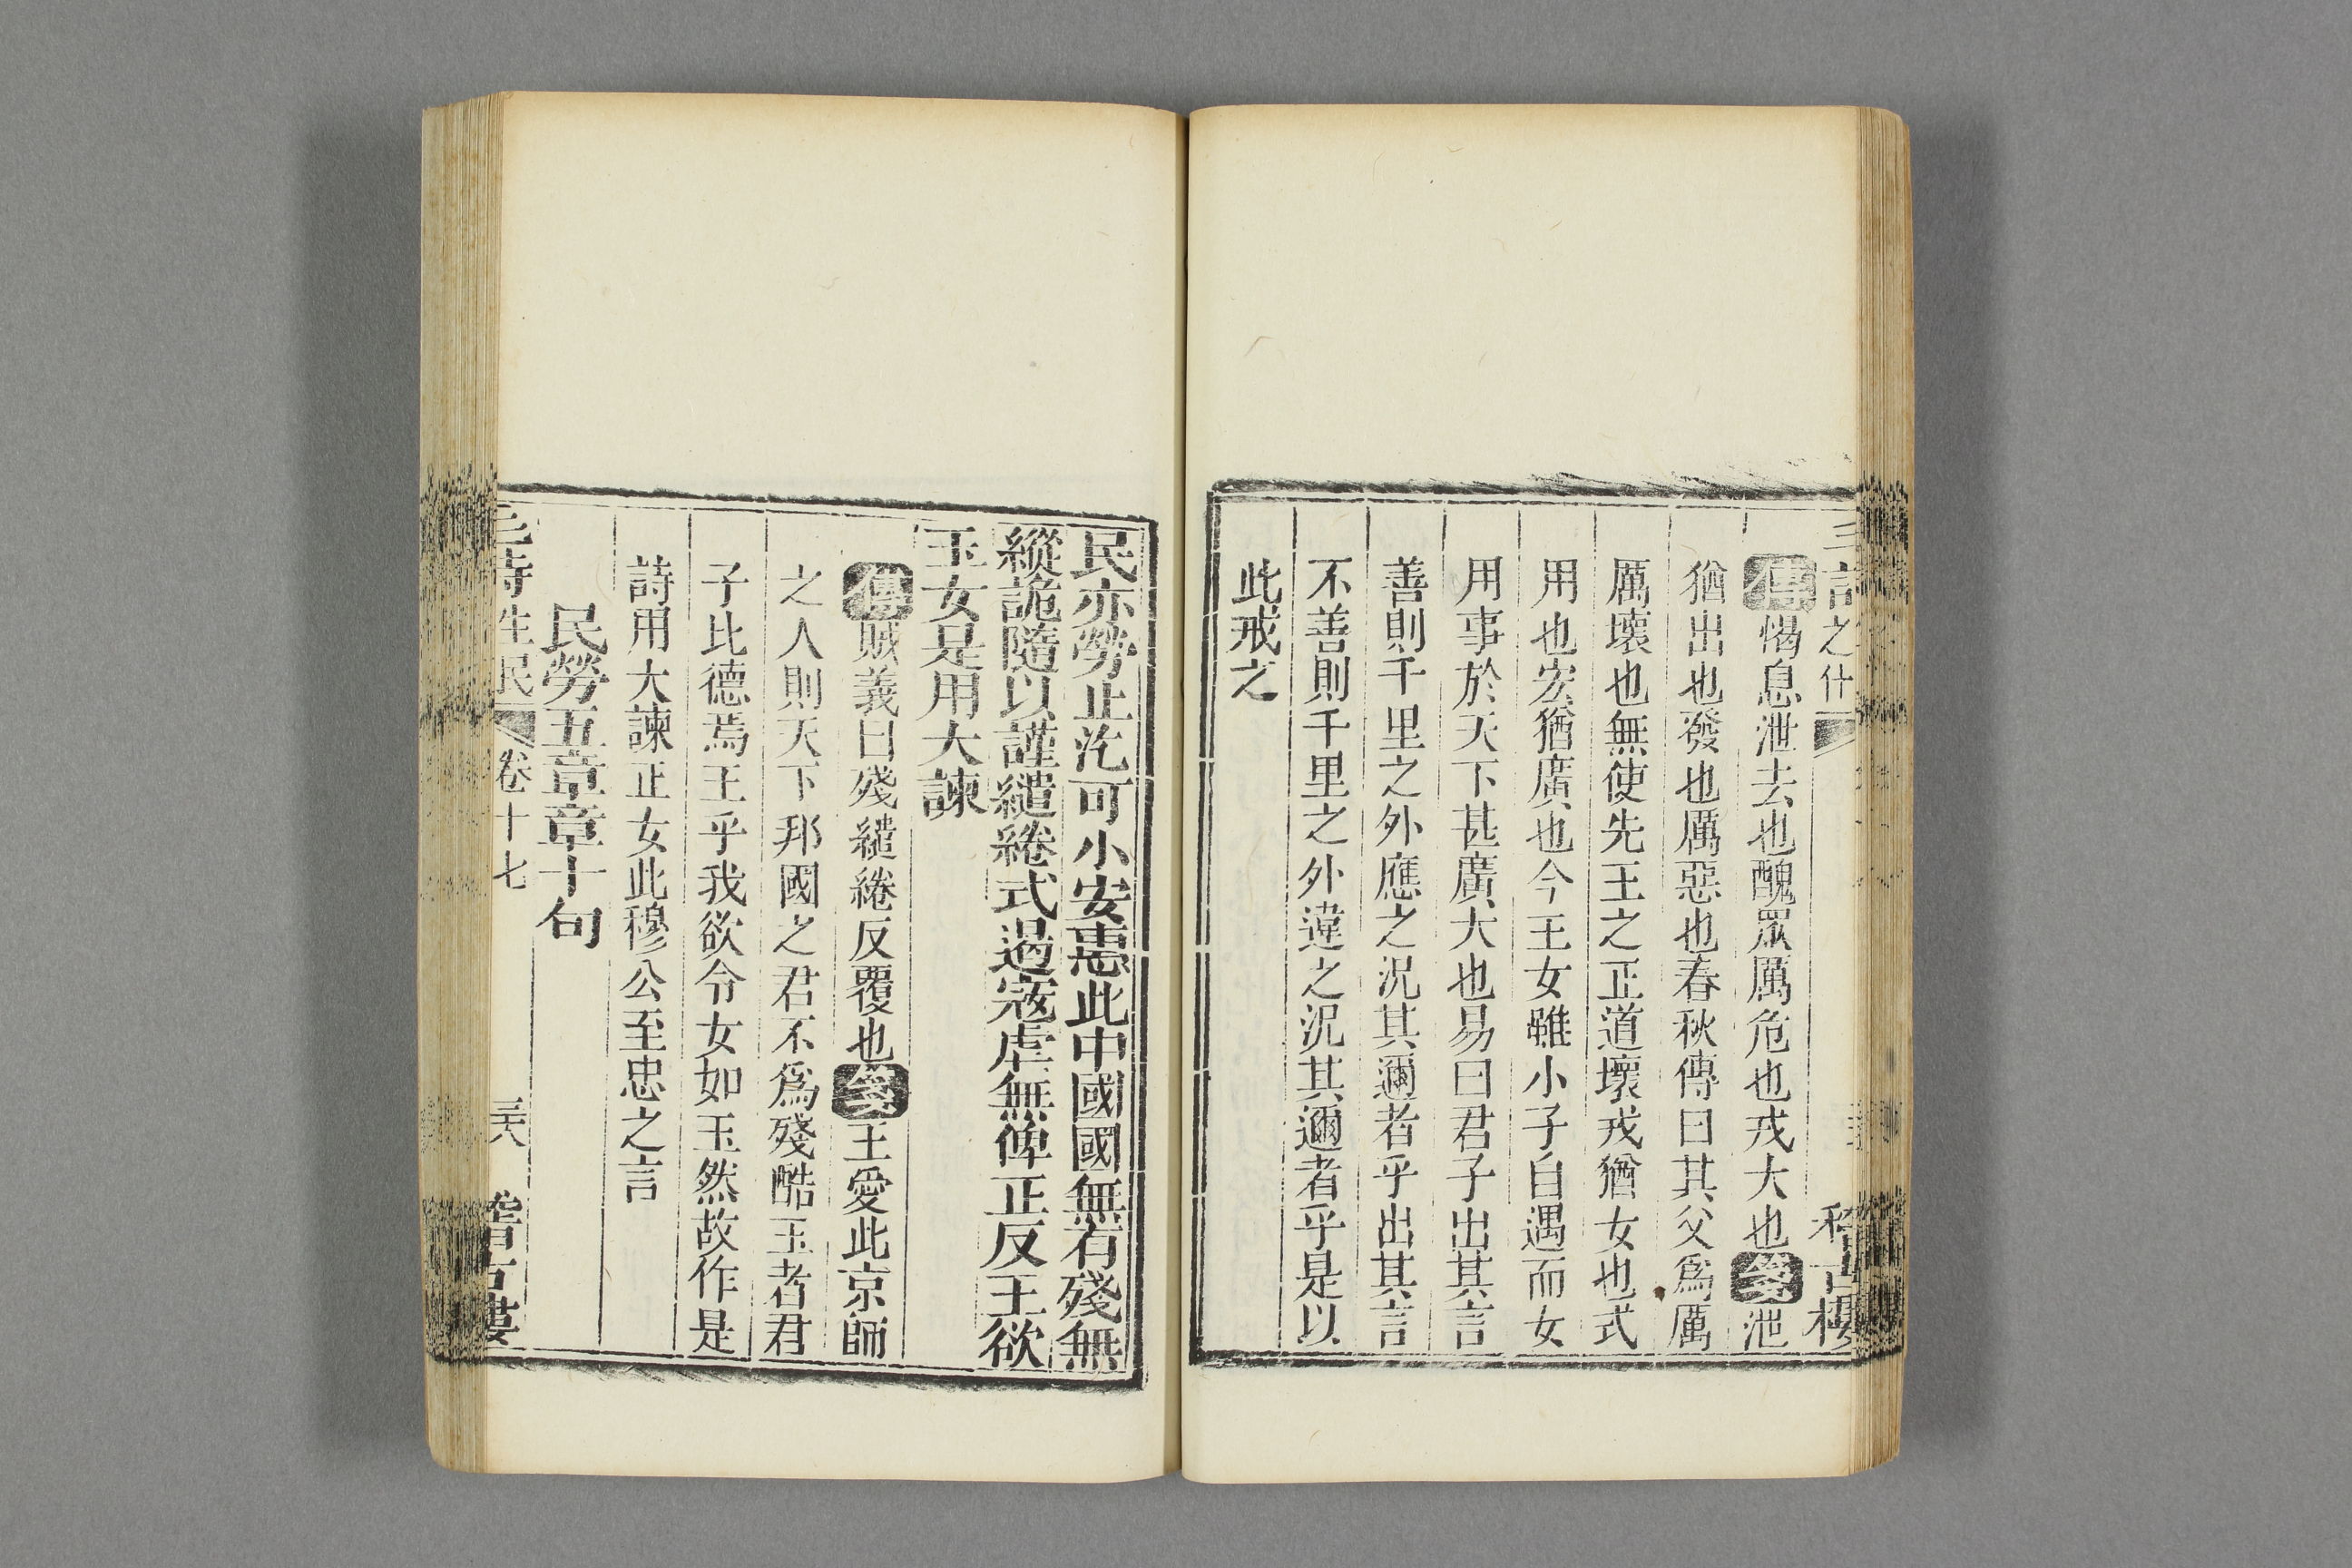 之什
稽古樓
傳愒息泄去也醜眾厲危也戎大也箋泄
猶出也發也厲惡也春秋傳曰其父爲厲
厲壞也無使先王之正道壞戎猶女也式
用也宏猶廣也今王女雖小子自遇而女
用事於天下甚廣大也易曰君子出其言
善則千里之外應之況其邇者乎出其言
不善則千里之外違之況其邇者乎是以
此戒之
民亦勞止汔可小安惠此中國國無有殘無
縱詭隨以謹繾綣式遏寇虐無俾正反王欲
玉女是用大諫
傳賊義曰殘繾綣反覆也箋王愛此京師
之人則天下邦國之君不爲殘酷玉者君
子比德焉王乎我欲令女如玉然故作是
詩用大諫正女此穆公至忠之言
民勞五章章十句
毛詩生民 卷十七
稽古樓